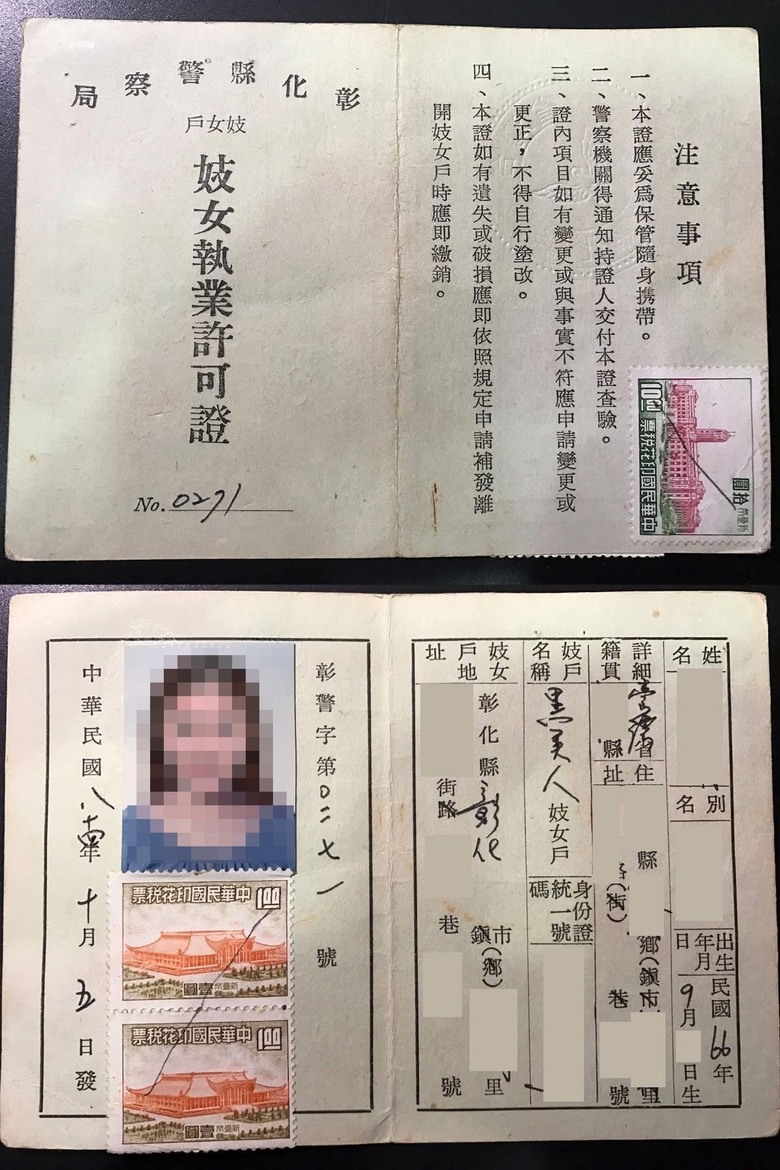 彰化縣警察局
妓女戶
妓女執業許可證
No. 0271
注意事項
一、本證應妥為保管隨身携帶。
二、警察機關得通知持證人交付本證查驗。
三、證內項目如有變更或與事實不符應申請變更或
更正，不得自行塗改。
四、本證如有遺失或破損應即依照規定申請補發離
開妓女戶時應即繳銷。
10.00
中華民國印花稅票
新臺幣
拾圓
姓名
別名
出生年月日
民國66年
9月
日生
詳細籍貫
省
縣
住址
縣
鄉(鎮市
(街)
巷
里
號
妓戶名稱
黑美人妓女戶
身份證統一號碼
妓女戶地址
彰化縣彰化
市鎮(鄉)
里
街路
巷
號
彰警字第0二七一號
中華民國八十年十月五日發
中華民國印花稅票
1.00
新臺幣
壹圓
中華民國印花稅票
1.00
新臺幣
壹圓